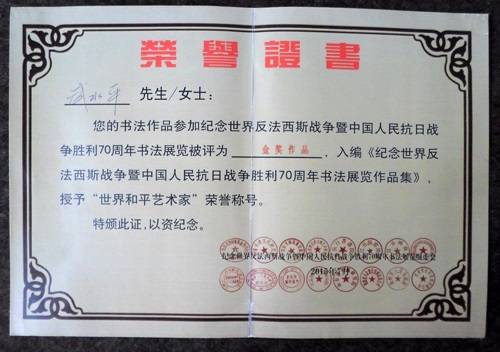 榮譽證書
武水平 先生/女士：
您的书法作品参加纪念世界反法西斯战争暨中国人民抗日战
争胜利70周年书法展览被评为 金奖作品 ，入编《纪念世界反
法西斯战争暨中国人民抗日战争胜利70周年书法展览作品集》，
授予“世界和平艺术家”荣誉称号。
特颁此证，以资纪念。
纪念世界反法西斯战争暨中国人民抗日战争胜利70周年书法展览组委会